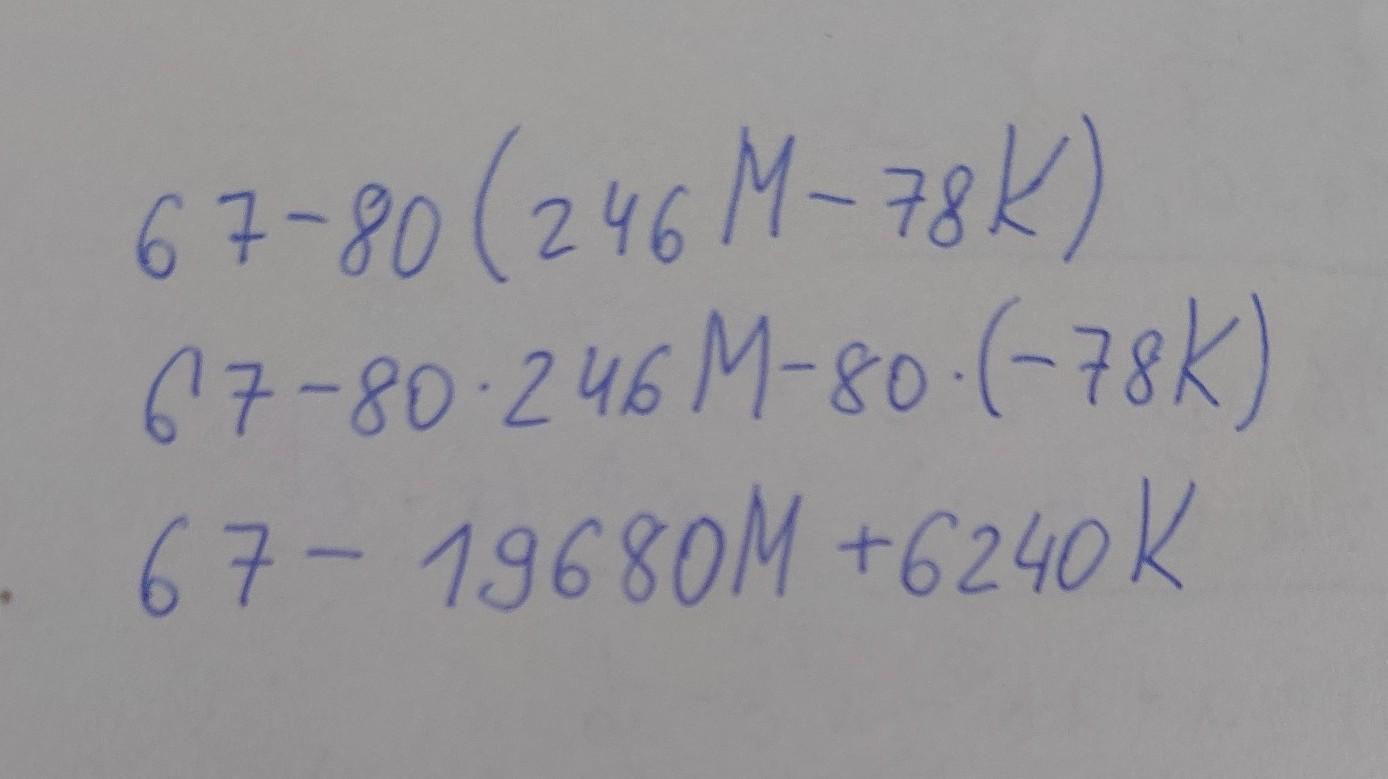 67-80(246M-78K)
67-80·246M-80·(-78K)
67-19680M+6240K